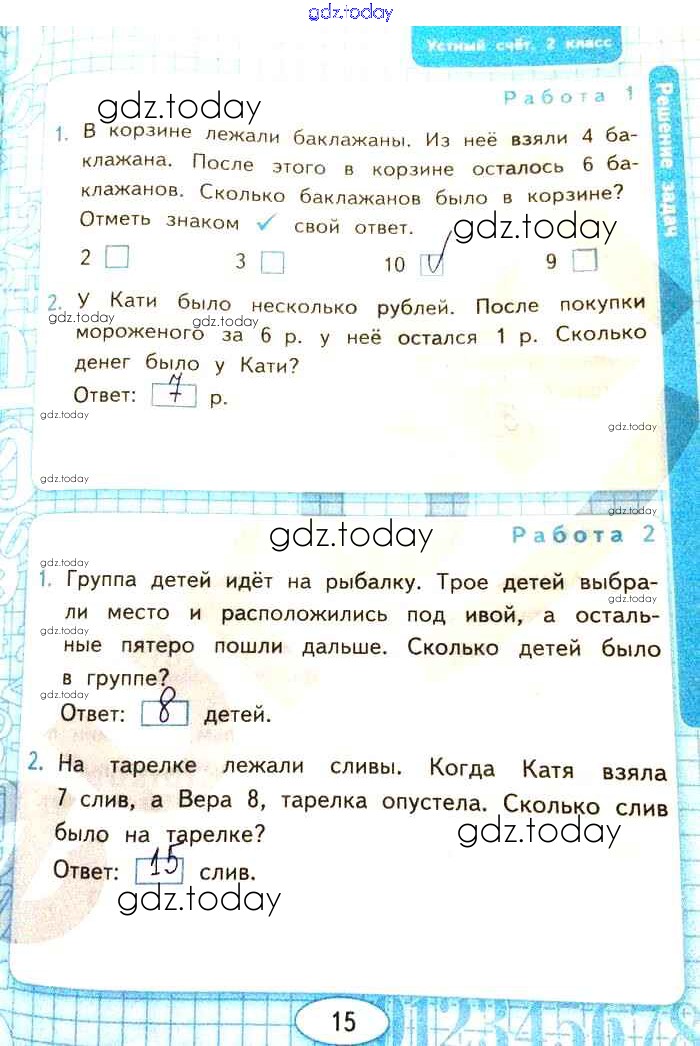 gdz.today
Устный счёт, 2 класс
Решение задач
Работа 1
gdz.today
1. В корзине лежали баклажаны. Из неё взяли 4 ба-
клажана. После этого в корзине осталось 6 ба-
клажанов. Сколько баклажанов было в корзине?
Отметь знаком ✓ свой ответ.
gdz.today
2 3 10 ✓ 9
2. У Кати было несколько рублей. После покупки
gdz.today gdz.today
мороженого за 6 р. у неё остался 1 р. Сколько
денег было у Кати?
Ответ: 7 р.
gdz.today
gdz.today
gdz.today
gdz.today
gdz.today
Работа 2
gdz.today
1. Группа детей идёт на рыбалку. Трое детей выбра-
gdz.today gdz.today
ли место и расположились под ивой, а осталь-
gdz.today
ные пятеро пошли дальше. Сколько детей было
в группе?
gdz.today
Ответ: 8 детей.
2. На тарелке лежали сливы. Когда Катя взяла
7 слив, а Вера 8, тарелка опустела. Сколько слив
было на тарелке?
gdz.today
Ответ: 15 слив.
gdz.today
15